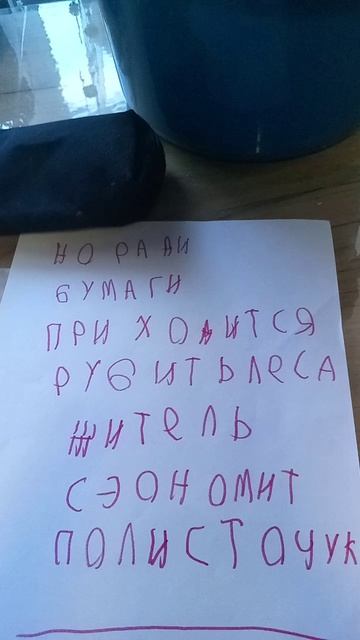 НО РАДИ
БУМАГИ
ПРИХОДИТСЯ
РУБИТЬ ЛЕСА
ЖИТЕЛЬ
СЭОНОМИТ
ПО ЛИСТОЧУК